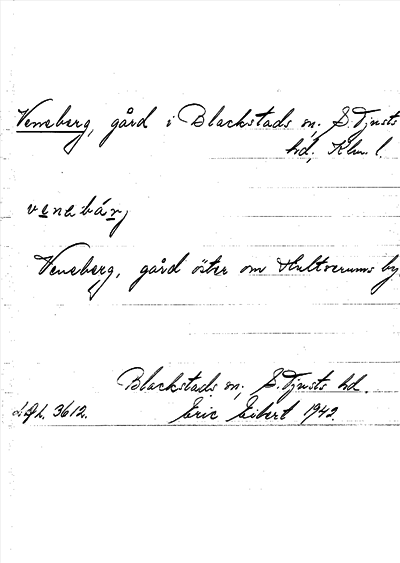 Veneberg, gård i Blackstads sn; S. Tjusts
hd, Klm. l.
venabárj
Veneberg, gård öster om Hultserums by.
Blackstads sn; S. Tjusts hd.
3612. Eric Eibert 1942.